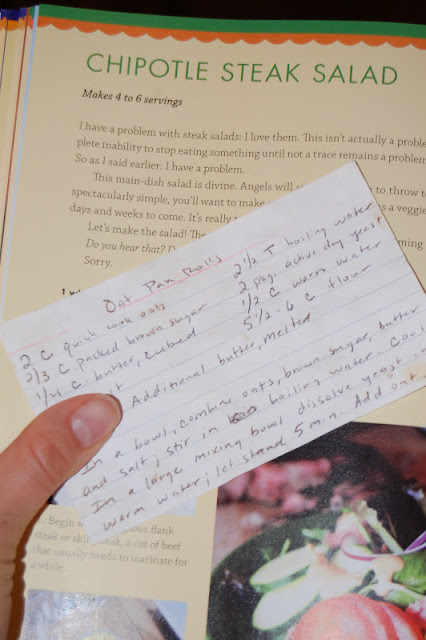 CHIPOTLE STEAK SALAD
Makes 4 to 6 servings
I have a problem with steak salads: I love them. This isn't actually a
plete inability to stop eating something until not a trace remains a problem
So as I said earlier: I have a problem.
This main-dish salad is divine. Angels will to throw
spectacularly simple, you'll want to make as a
days and weeks to come. It's really
Let's make the salad!
Do you hear that?
Sorry.
Oat Pan Rolls
2 C quick cook oats
2/3 C packed brown sugar
1/4 C. butter, cubed
2 1/2 T boiling water
2 pkg. active dry yeast
1/2 C warm water
5 1/2 - 6 C flour
Additional butter, melted
In a bowl, combine oats, brown sugar, butter
and salt; stir in boiling water. Cool
In a large mixing bowl dissolve yeast in
warm water; let stand 5 min. Add oat
. Begin flank
steak or a cut of beef
that usually needs to marinate for
a while.